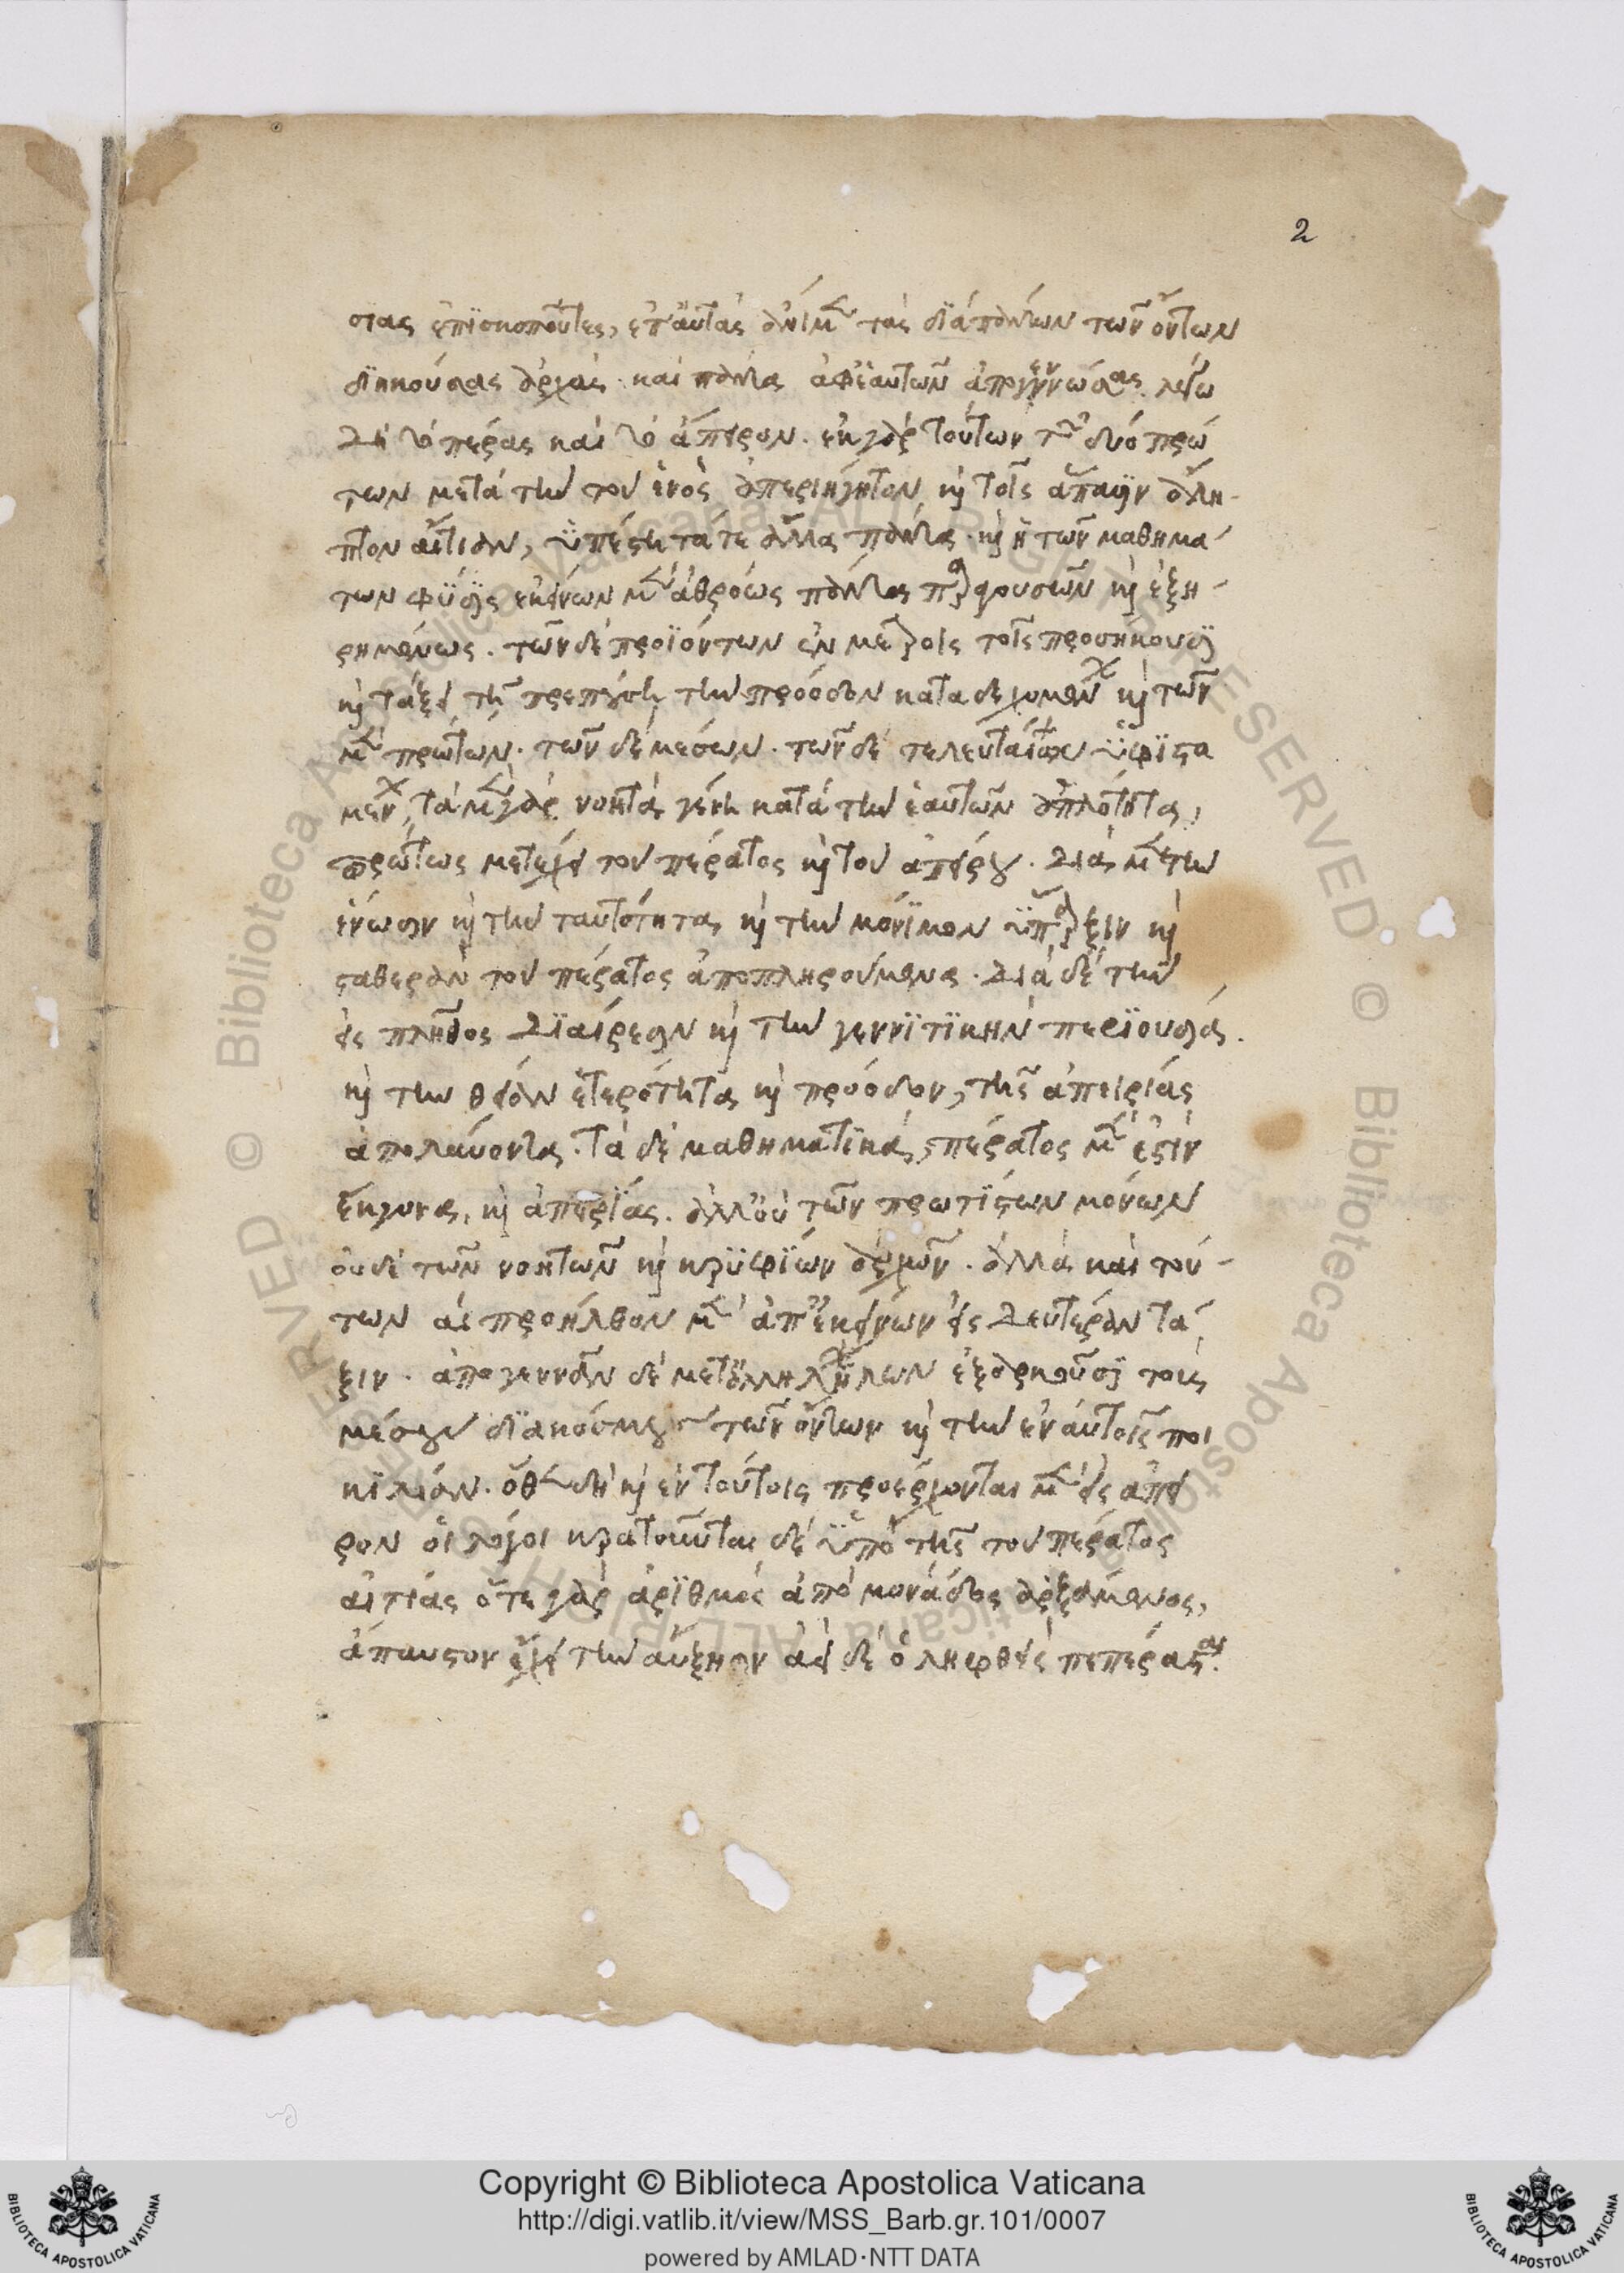 2
σίας ἐπϊσκοποῦντες, ἐπ' αὐτὰς ἄνιμεν τὰς διὰ πάντων τῶν ὄντων
διηκούσας ἀρχὰς· καὶ πάντα ἀφ' ἑαυτῶν ἀπογεννώσας. λέγω
δὴ τὸ πέρας καὶ τὸ ἄπειρον. ἐκ γὰρ τούτων τῶν δύο πρώ
των μετὰ τὴν τοῦ ἑνὸς ἀπεριήγητον καὶ τοῖς ἅπασιν ἄλη-
πτον αἰτίαν, ὑπέστη τά τε ἄλλα πάντα. καὶ ἡ τῶν μαθημά
των φύσις ἐκείνων μὲν ἀθρόως πάντας παραγουσῶν καὶ ἐξη-
ρημένως. τῶν δὲ προϊόντων ἐν μέτροις τοῖς προσήκουσι
καὶ τάξει τῇ πρεπούσῃ τὴν πρόοδον καταδεχομένων καὶ τῶν
μὲν πρώτων. τῶν δὲ μέσων. τῶν δὲ τελευταίων ὑφϊστα
μένων, τὰ μὲν γὰρ νοητὰ γένη κατὰ τὴν ἑαυτῶν ἁπλότητα,
πρώτως μετέχει τοῦ πέρατος καὶ τοῦ ἀπείρου. διὰ μὲν τὴν
ἕνωσιν καὶ τὴν ταυτότητα καὶ τὴν μόνϊμον ὕπαρξιν καὶ
σταθερὰν τοῦ πέρατος ἀποπληρούμενα. διὰ δὲ τὴν
εἰς πλῆθος διαίρεσιν καὶ τὴν γεννϊτϊκὴν περϊουσίας.
καὶ τὴν θείαν ἑτερότητα καὶ πρόοδον, τῆς ἀπειρίας
ἀπολαύοντα. τὰ δὲ μαθηματϊκὰ, πέρατος μέν ἐστιν
ἔκγονα, καὶ ἀπειρίας. ἀλλ' οὐ τῶν πρωτίστων μόνων
οὐδὲ τῶν νοητῶν καὶ κρϋφϊων ἀρχῶν. ἀλλὰ καὶ τού-
των αἳ προῆλθον μὲν ἀπ' ἐκείνων εἰς δευτέραν τά
ξιν. ἀπογεννᾶν δὲ μετ' ἀλλήλων ἐξαρκοῦσι τοὺς
μέσους διακόσμους τῶν ὄντων καὶ τὴν ἐν αὐτοῖς ποι
κϊλίαν. ὅθεν δὴ καὶ ἐν τούτοις προέρχονται μὲν εἰς ἄπει
ρον οἱ λόγοι κρατοῦνται δὲ ὑπὸ τῆς τοῦ πέρατος
αἰτίας ὅτε γὰρ ἀρϊθμὸς ἀπὸ μονάδος ἀρξάμενος,
ἄπαυστον ἔχει τὴν αὔξησιν ἀεὶ δὲ ὁ ληφθεὶς πεπέρασται.
Copyright © Biblioteca Apostolica Vaticana
http://digi.vatlib.it/view/MSS_Barb.gr.101/0007
powered by AMLAD·NTT DATA